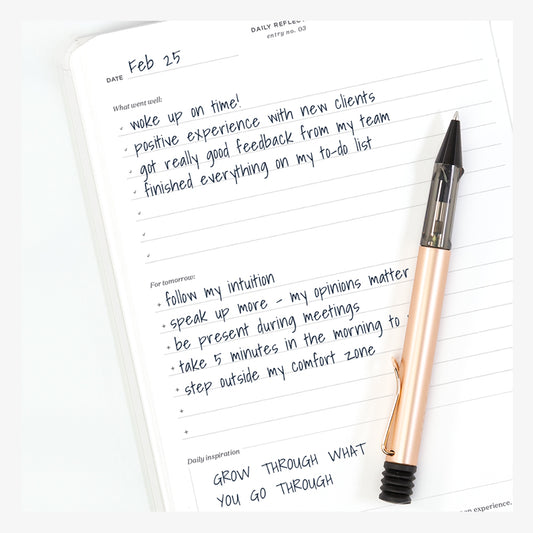 DAILY REFLEC
entry no. 03
DATE Feb 25
What went well:
woke up on time!
positive experience with new clients
got really good feedback from my team
finished everything on my to-do list
For tomorrow:
follow my intuition
speak up more - my opinions matter
be present during meetings
take 5 minutes in the morning to
step outside my comfort zone
Daily inspiration
GROW THROUGH WHAT
YOU GO THROUGH
experience.